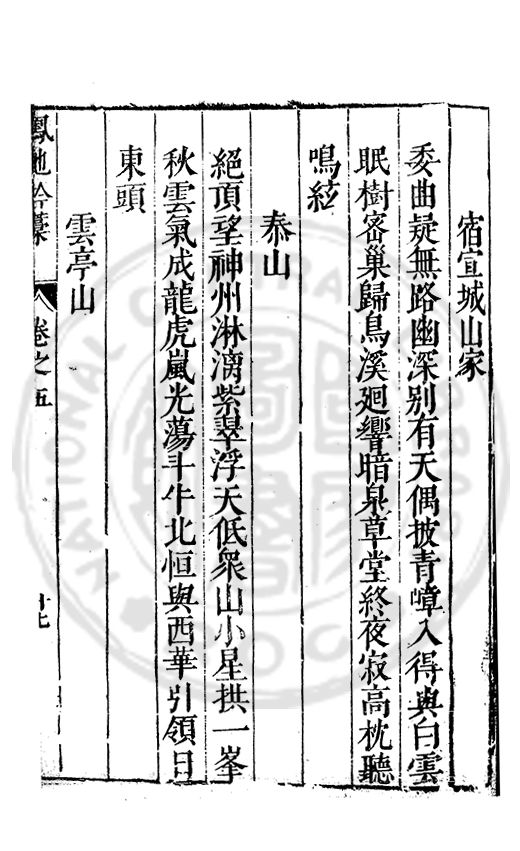 宿宣城山家
委曲疑無路幽深別有天偶披青嶂入得與白雲
眠樹密巢歸鳥溪廻響暗泉草堂終夜寂高枕聽
鳴絃
泰山
絕頂望神州淋漓紫翠浮天低衆山小星拱一峯
秋雲氣成龍虎嵐光蕩斗牛北恒與西華引領日
東頭
雲亭山
鳳池吟藁
卷之五
十七